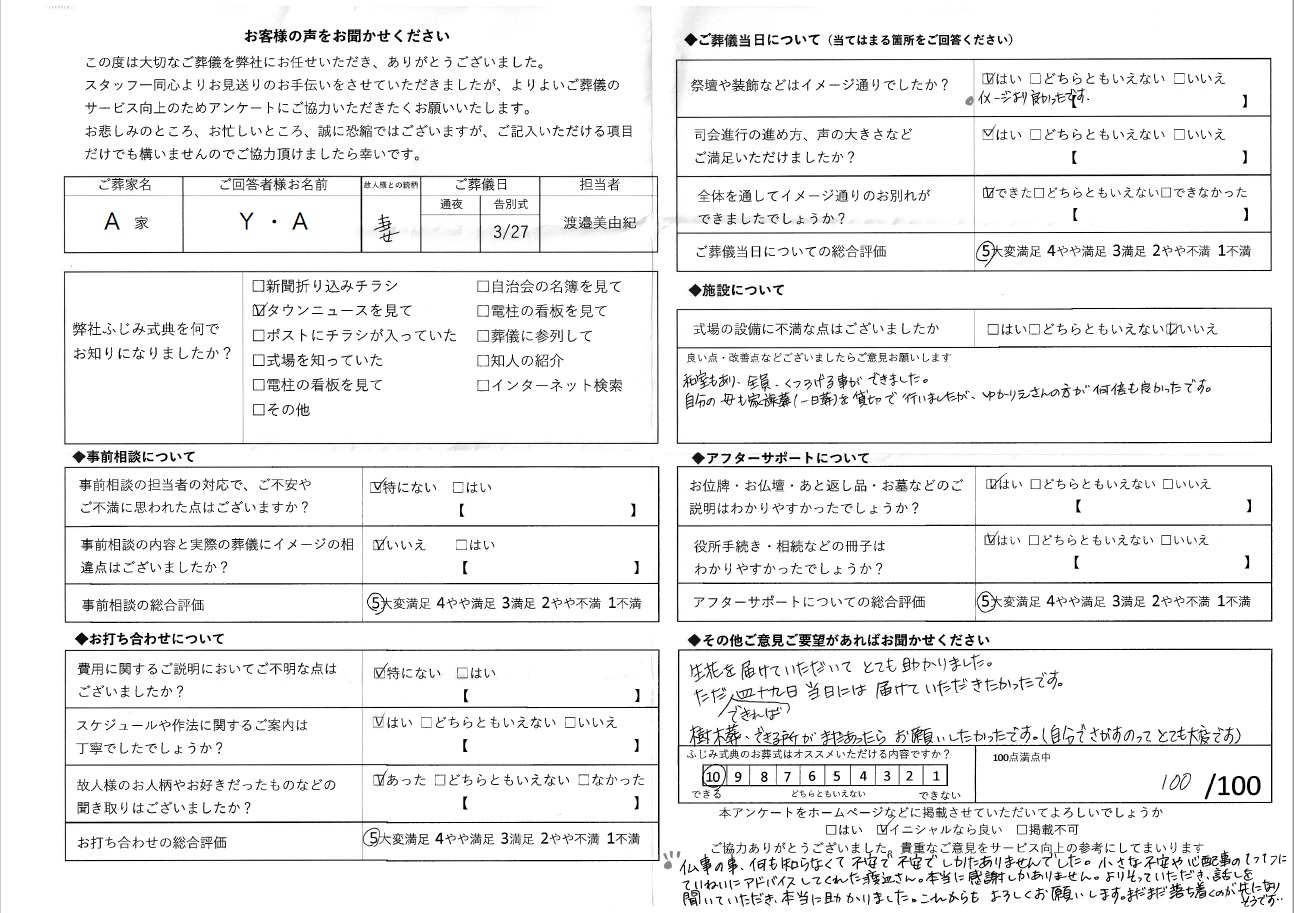 お客様の声をお聞かせください
この度は大切なご葬儀を弊社にお任せいただき、ありがとうございました。
スタッフ一同心よりお見送りのお手伝いをさせていただきましたが、よりよいご葬儀の
サービス向上のためアンケートにご協力いただきたくお願いいたします。
お悲しみのところ、お忙しいところ、誠に恐縮ではございますが、ご記入いただける項目
だけでも構いませんのでご協力頂けましたら幸いです。
ご葬家名 ご回答者様お名前 故人様との続柄 ご葬儀日 担当者
通夜 告別式
A 家 Y・A 妻 3/27 渡邉美由紀
弊社ふじみ式典を何で
お知りになりましたか?
□新聞折り込みチラシ □自治会の名簿を見て
☑タウンニュースを見て □電柱の看板を見て
□ポストにチラシが入っていた □葬儀に参列して
□式場を知っていた □知人の紹介
□電柱の看板を見て □インターネット検索
□その他
◆事前相談について
事前相談の担当者の対応で、ご不安や
ご不満に思われた点はございますか?
☑特にない □はい
【 】
事前相談の内容と実際の葬儀にイメージの相
違点はございましたか?
☑いいえ □はい
【 】
事前相談の総合評価 ⑤大変満足 4やや満足 3満足 2やや不満 1不満
◆お打ち合わせについて
費用に関するご説明においてご不明な点は
ございましたか?
☑特にない □はい
【 】
スケジュールや作法に関するご案内は
丁寧でしたでしょうか?
☑はい □どちらともいえない □いいえ
【 】
故人様のお人柄やお好きだったものなどの
聞き取りはございましたか?
☑あった □どちらともいえない □なかった
【 】
お打ち合わせの総合評価 ⑤大変満足 4やや満足 3満足 2やや不満 1不満
◆ご葬儀当日について(当てはまる箇所をご回答ください)
祭壇や装飾などはイメージ通りでしたか?
☑はい □どちらともいえない □いいえ
【イメージより良かったです。 】
司会進行の進め方、声の大きさなど
ご満足いただけましたか?
☑はい □どちらともいえない □いいえ
【 】
全体を通してイメージ通りのお別れが
できましたでしょうか?
☑できた□どちらともいえない□できなかった
【 】
ご葬儀当日についての総合評価 ⑤大変満足 4やや満足 3満足 2やや不満 1不満
◆施設について
式場の設備に不満な点はございましたか □はい□どちらともいえない☑いいえ
良い点・改善点などございましたらご意見お願いします
和室もあり、全員、くつろげる事ができました。
自分の母も家族葬(一日葬)を貸切で行いましたが、ゆかりえさんの方が何倍も良かったです。
◆アフターサポートについて
お位牌・お仏壇・あと返し品・お墓などのご
説明はわかりやすかったでしょうか?
☑はい □どちらともいえない □いいえ
【 】
役所手続き・相続などの冊子は
わかりやすかったでしょうか?
☑はい □どちらともいえない □いいえ
【 】
アフターサポートについての総合評価 ⑤大変満足 4やや満足 3満足 2やや不満 1不満
◆その他ご意見ご要望があればお聞かせください
生花を届けていただいてとても助かりました。
ただ、四十九日当日には届けていただきたかったです。
できれば
樹木葬、できる所がまだあったらお願いしたかったです。(自分でさがすのってとても大変です)
ふじみ式典のお葬式はオススメいただける内容ですか?
⑩ 9 8 7 6 5 4 3 2 1
できる どちらともいえない できない
100点満点中
100 /100
本アンケートをホームページなどに掲載させていただいてよろしいでしょうか
□はい ☑イニシャルなら良い □掲載不可
ご協力ありがとうございました。貴重なご意見をサービス向上の参考にしてまいります
仏事の事、何も知らなくて不安で不安でしかたありませんでした。小さな不安や心配事の1つ1つに
ていねいにアドバイスしてくれた渡辺さん。本当に感謝しかありません。よりそっていただき、話しを
聞いていただき、本当に助かりました。これからもよろしくお願いします。まだまだ落ち着くのが先になり
そうです…